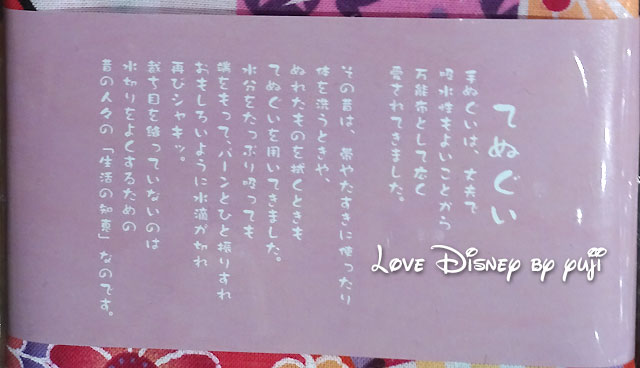 てぬぐい
手ぬぐいは、丈夫で
吸水性もよいことから
万能布として広く
愛されてきました。
その昔は、帯やたすきに使ったり
体を洗うときや、
ぬれたものを拭くときも
てぬぐいを用いてきました。
水分をたっぷり吸っても
端をもって、パーンとひと振りすれ
おもしろいように水滴が切れ
再びシャキッ。
裁ち目を縫っていないのは
水切りをよくするための
昔の人々の「生活の知恵」なのです。
Love Disney by yuji